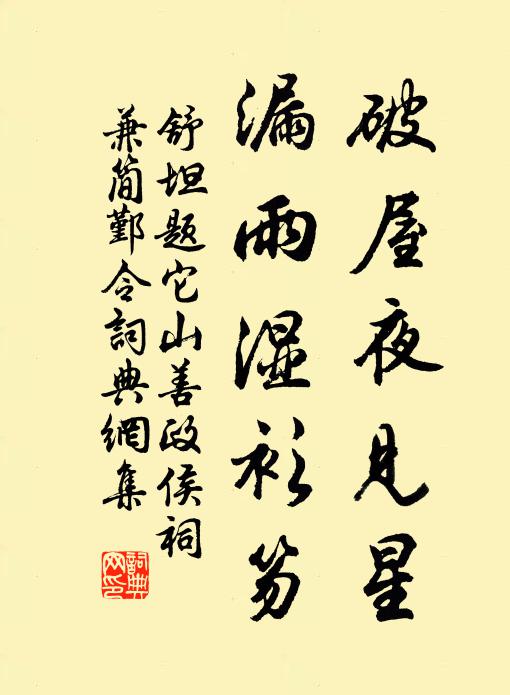 破屋夜見星
漏雨濕衫笏
舒坦题它山善政侯祠
兼简鄞令詞典網集
詞典网印